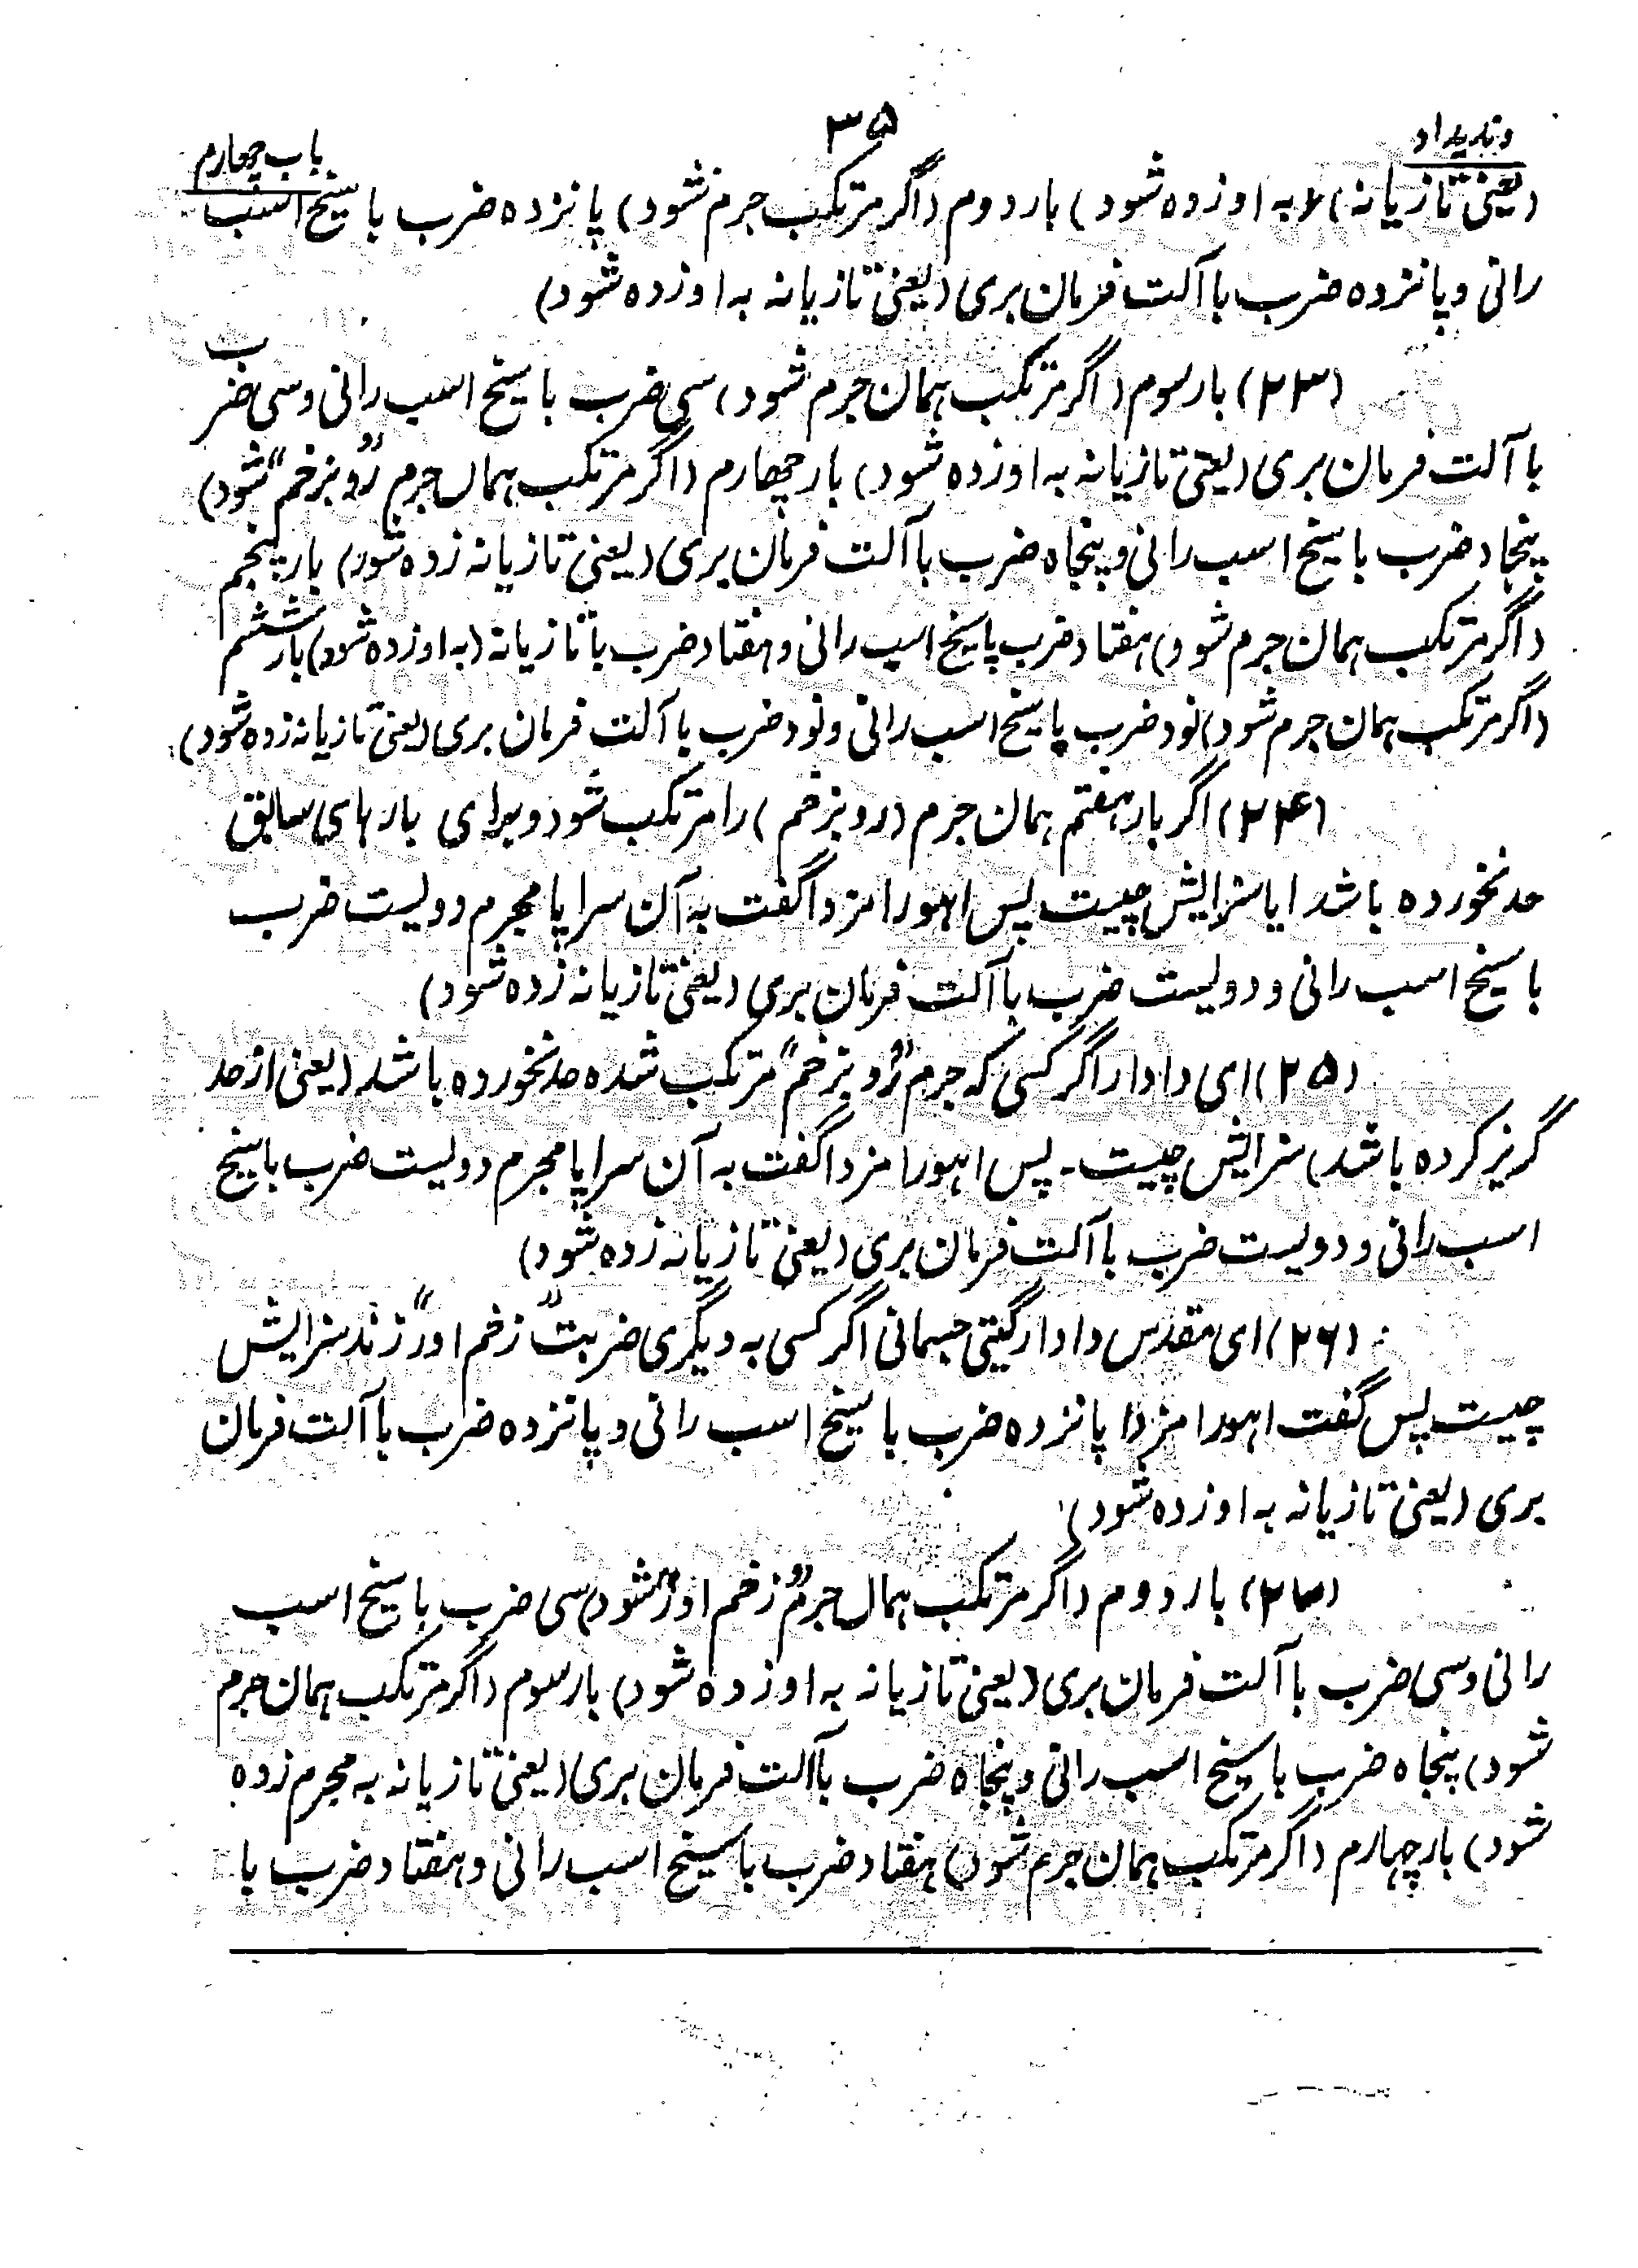 وندیداد
۳۵
باب چهارم
(یعنی تازیانه) به او زده شود) بار دوم (اگر مرتکب جرم شود) پانزده ضرب با سیخ اسب
رانی و پانزده ضرب با آلت فرمان بری (یعنی تازیانه به او زده شود)
(۲۳) بار سوم (اگر مرتکب همان جرم شود) سی ضرب با سیخ اسب رانی و سی ضرب
با آلت فرمان بری (یعنی تازیانه به او زده شود) بار چهارم (اگر مرتکب همان جرم "رو بزخم" شود)
پنجاه ضرب با سیخ اسب رانی و پنجاه ضرب با آلت فرمان بری (یعنی تازیانه زده شود) بار پنجم
(اگر مرتکب همان جرم شود) هفتاد ضرب پاسیخ اسپ رانی و هفتاد ضرب با تازیانه (به او زده شود) بار ششم
(اگر مرتکب همان جرم شود) نود ضرب پاسیخ اسب رانی و نود ضرب با آلت فرمان بری (یعنی تازیانه زده شود).
(۲۴) اگر بار هفتم همان جرم (رو بزخم) را مرتکب شود و برای بارهای سابق
حد نخورده باشد ایا سزایش چیست پس اهورا مزدا گفت به آن سراپا مجرم دویست ضرب
با سیخ اسب رانی و دویست ضرب با آلت فرمان بری (یعنی تازیانه زده شود)
(۲۵) ای دادار اگر کسی که جرم "رو بزخم" مرتکب شده حد نخورده باشد (یعنی از حد
گریز کرده باشد) سزایش چیست - پس اهورا مزدا گفت به آن سراپا مجرم دویست ضرب با سیخ
اسب رانی و دویست ضرب با آلت فرمان بری (یعنی تازیانه زده شود)
(۲۶) ای مقدس دادار گیتی جسمانی اگر کسی به دیگری ضربت "زخم اور" زند سزایش
چیست پس گفت اهورا مزدا پانزده ضرب با سیخ اسب رانی و پانزده ضرب با آلت فرمان
بری (یعنی تازیانه به او زده شود)
(۲۷) بار دوم (اگر مرتکب همال جرم "زخم اور" شود) سی ضرب با سیخ اسب
رانی و سی ضرب با آلت فرمان بری (یعنی تازیانه به او زده شود) بار سوم (اگر مرتکب همان جرم
شود) پنجاه ضرب با سیخ اسب رانی و پنجاه ضرب با آلت فرمان بری (یعنی تازیانه به مجرم زده
شود) بار چهارم (اگر مرتکب همان جرم شود) هفتاد ضرب با سیخ اسب رانی و هفتاد ضرب با